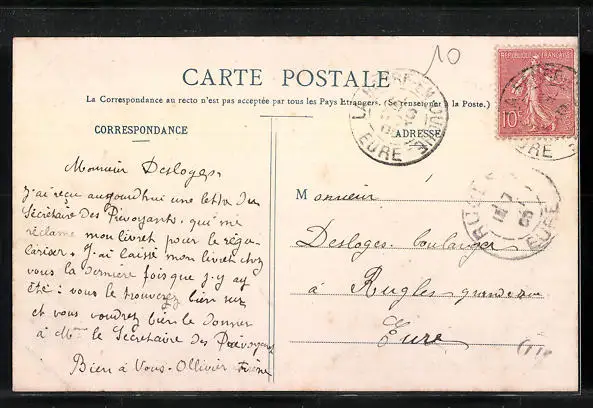 10
CARTE POSTALE
La Correspondance au recto n'est pas acceptée par tous les Pays Etrangers. (Se renseigner à la Poste.)
CORRESPONDANCE
ADRESSE
REPUBLIQUE FRANÇAISE
10c
EURE
EURE
EURE
Monsieur Desloges,
j'ai reçu aujourd'hui une lettre du
Secrétaire des Prévoyants, qui me
réclame mon livret pour le régu-
lariser. J'ai laissé mon livret chez
vous la dernière fois que j'y ay
été : vous le trouverez bien sur
et vous voudrez bien le donner
à Mr le Secrétaire des Prévoyants
Bien à Vous. Ollivier
Monsieur
Desloges boulanger
à Rugles
Eure